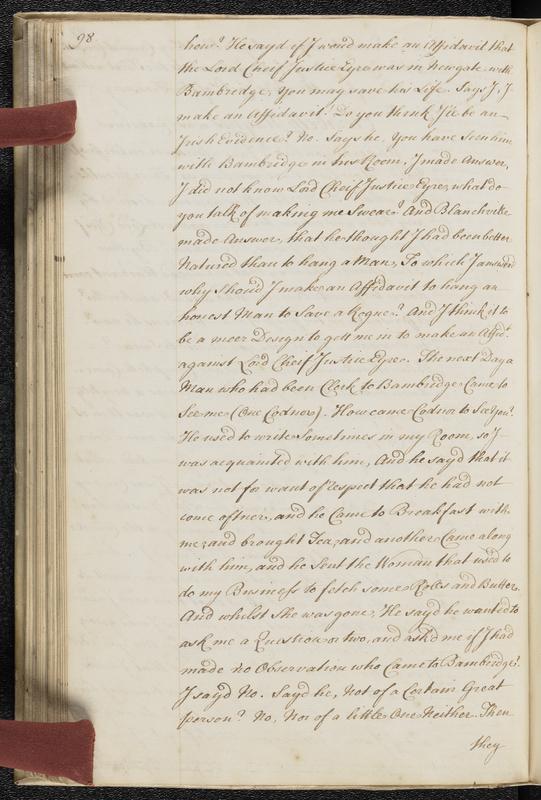 98
how? He sayd if I woud make an Affidavit that
the Lord Cheif Justice Eyre was in Newgate with
Bambridge, You may save his Life. Says I, I
make an Affidavit! Do you think I'le be an
Irish Evidence? No. Says he, You have seen him
with Bambridge in his Room, I made Answer,
I did not know Lord Cheif Justice Eyre, what do
you talk of making me Swear? And Blanchvile
made Answer, that he thought I had been better
Natured than to hang a Man, To which I answerd
why shoud I make an Affidavit to hang an
honest Man to Save a Rogue? And I think it to
be a meer Design to gett me in to make an Affidt.
against Lord Cheif Justice Eyre. The next Day a
Man who had been Clerk to Bambridge Came to
See me (One Codnor). How came Codnor to See You?
He used to write Sometimes in my Room, so I
was acquainted with him, And he sayd that it
was not for want of respect that he had not
come oftner, and he Came to Breakfast with
me, and brought Tea, and another Came along
with him, and he Sent the Woman that used to
do my Business to fetch some Roles and Butter.
And whilst She was gone, He sayd he wanted to
ask me a Question or two, and askd me if I had
made no Observation who Came to Bambridge?
I sayd No. Sayd he, Not of a Certain Great
person? No, Nor of a little One Neither. Then
they